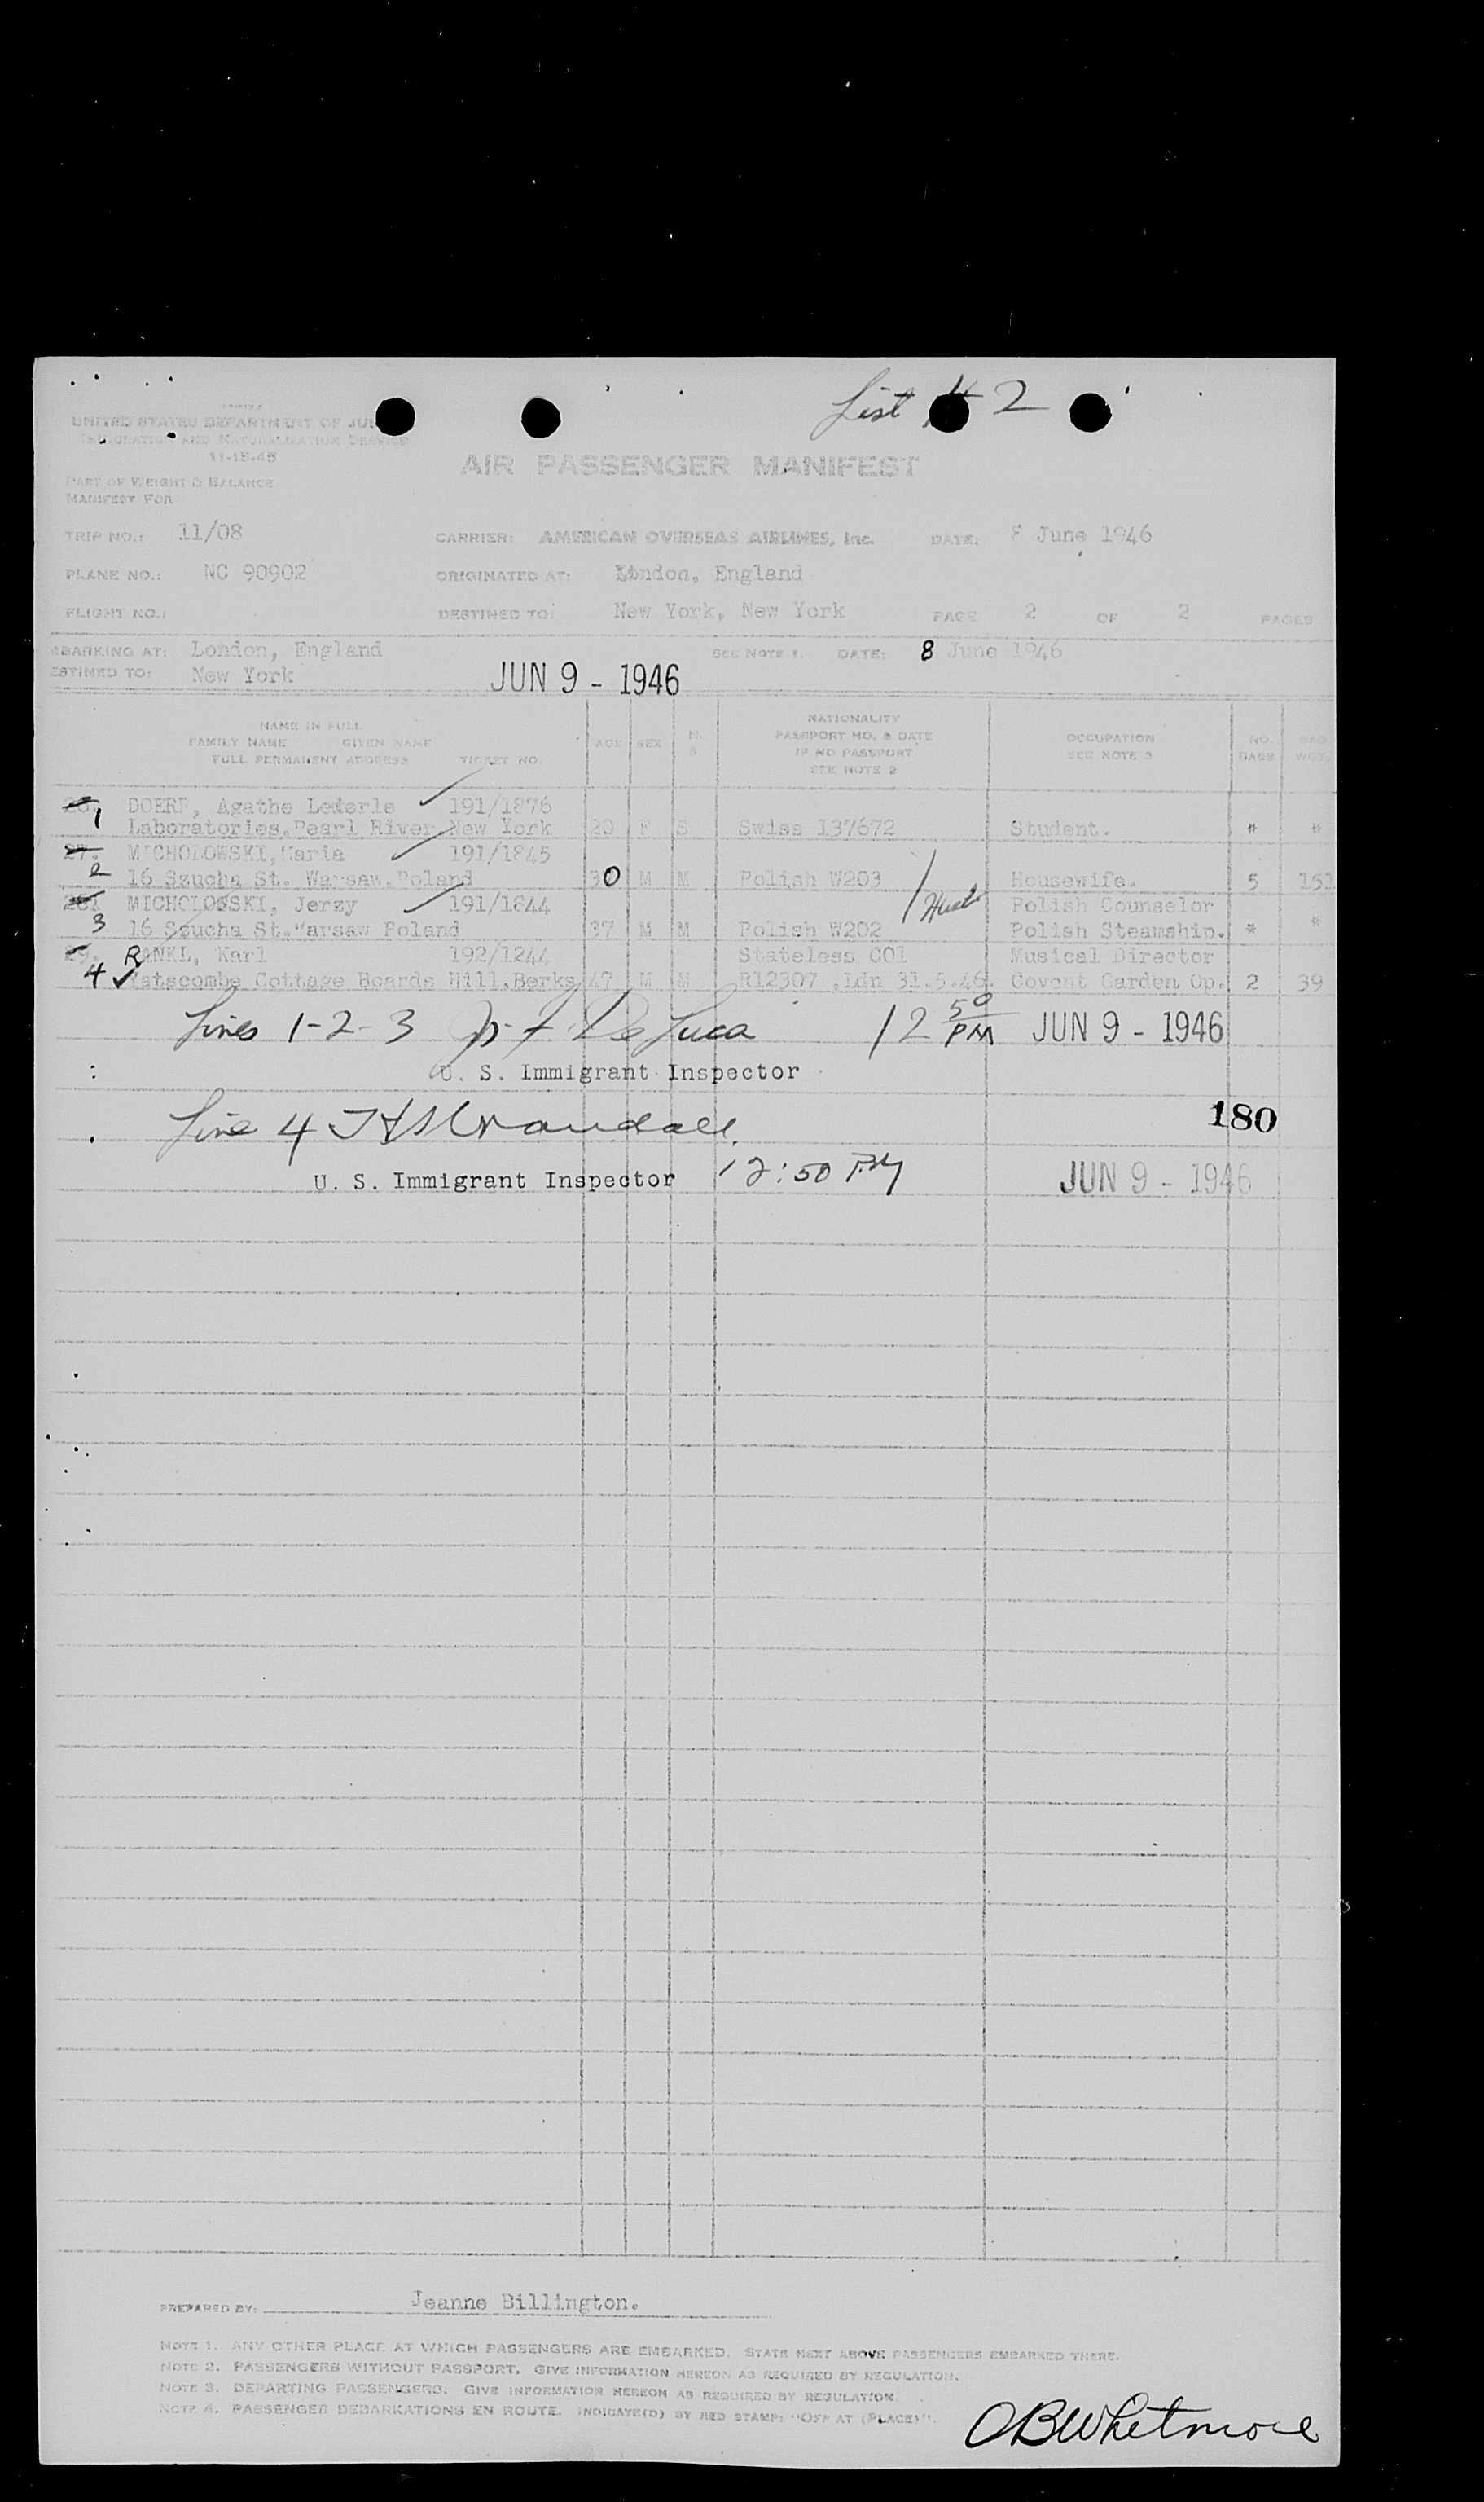 List # 2
UNITED STATES DEPARTMENT OF JUS
IMMIGRATION AND NATURALIZATION SERVICE
11-15-45
AIR PASSENGER MANIFEST
PART OF WEIGHT & BALANCE
MANIFEST FOR
TRIP NO.: 11/08 CARRIER: AMERICAN OVERSEAS AIRLINES, Inc. DATE: 8 June 1946
PLANE NO.: NC 90902 ORIGINATED AT: London, England
FLIGHT NO.: DESTINED TO: New York, New York PAGE 2 OF 2 PAGES
MBARKING AT: London, England SEE NOTE 1. DATE: 8 June 1946
ESTINED TO: New York JUN 9 - 1946
NAME IN FULL
FAMILY NAME GIVEN NAME
FULL PERMANENT ADDRESS TICKET NO.
AGE SEX M. S.
NATIONALITY
PASSPORT NO. & DATE
IF NO PASSPORT
SEE NOTE 2
OCCUPATION
SEE NOTE 3
NO. BAGS
BAG WGT.
26. DOERF, Agathe Lederle 191/1876
1 Laboratories.Pearl River New York 20 F S Swiss 137672 Student. * *
27. MICHOLOWSKI,Maria 191/1845
2 16 Szucha St. Warsaw.Poland 30 M M Polish W203 Housewife. 5 151
28. MICHOLOWSKI, Jerzy 191/1844 Polish Counselor
3 16 Szucha St.Warsaw Poland 37 M M Polish W202 Polish Steamship. * *
29. RANKL, Karl 192/1244 Stateless COI Musical Director
4 Yatscombe Cottage Boards Hill.Berks 47 M M R12307 .Ldn 31.5.46. Covent Garden Op. 2 39
Lines 1-2-3 De Luca 12 50 PM JUN 9 - 1946
U. S. Immigrant Inspector
Line 4 Crandall
180
U. S. Immigrant Inspector 12:50 PM JUN 9 - 1946
PREPARED BY: Jeanne Billington.
NOTE 1. ANY OTHER PLACE AT WHICH PASSENGERS ARE EMBARKED. STATE NEXT ABOVE PASSENGERS EMBARKED THERE.
NOTE 2. PASSENGERS WITHOUT PASSPORT. GIVE INFORMATION HEREON AS REQUIRED BY REGULATION.
NOTE 3. DEPARTING PASSENGERS. GIVE INFORMATION HEREON AS REQUIRED BY REGULATION.
NOTE 4. PASSENGER DEBARKATIONS EN ROUTE. INDICATE(D) BY RED STAMP: "OFF AT (PLACE)".
OBWhetmore